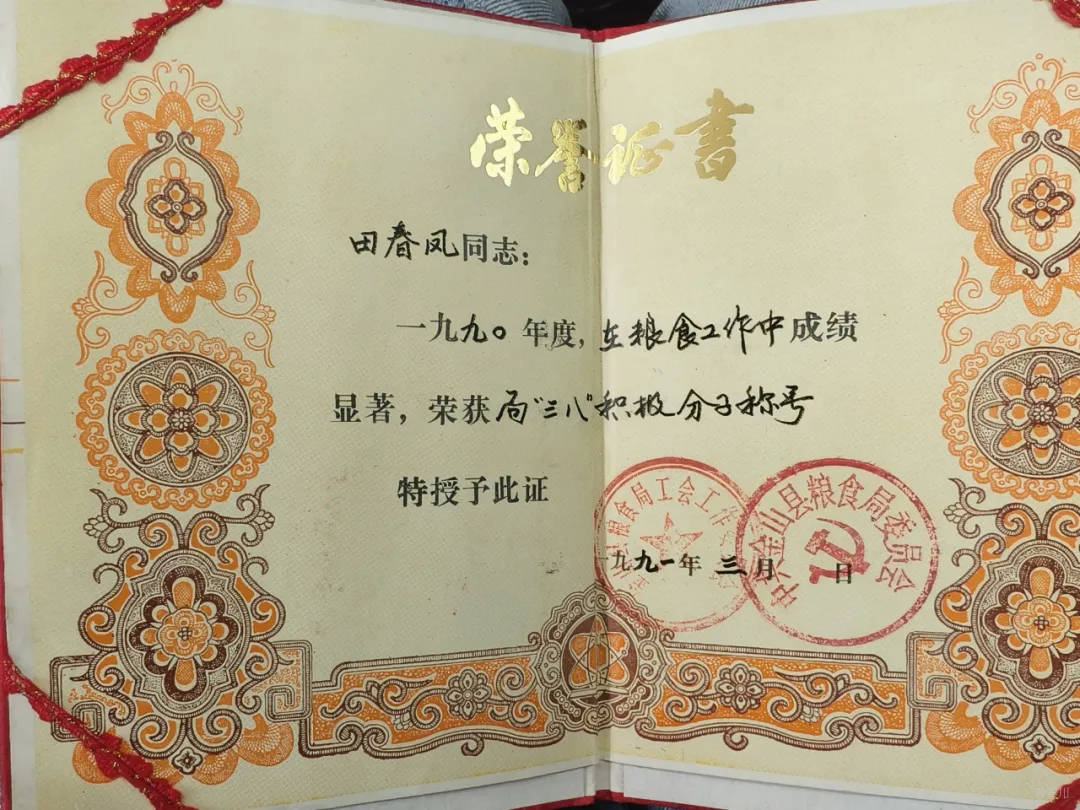 荣誉证书
田春凤同志：
一九九〇年度，在粮食工作中成绩
显著，荣获局“三八”积极分子称号
特授予此证
一九九一年 三月 日
县粮食局工会工作
中共金山县粮食局委员会